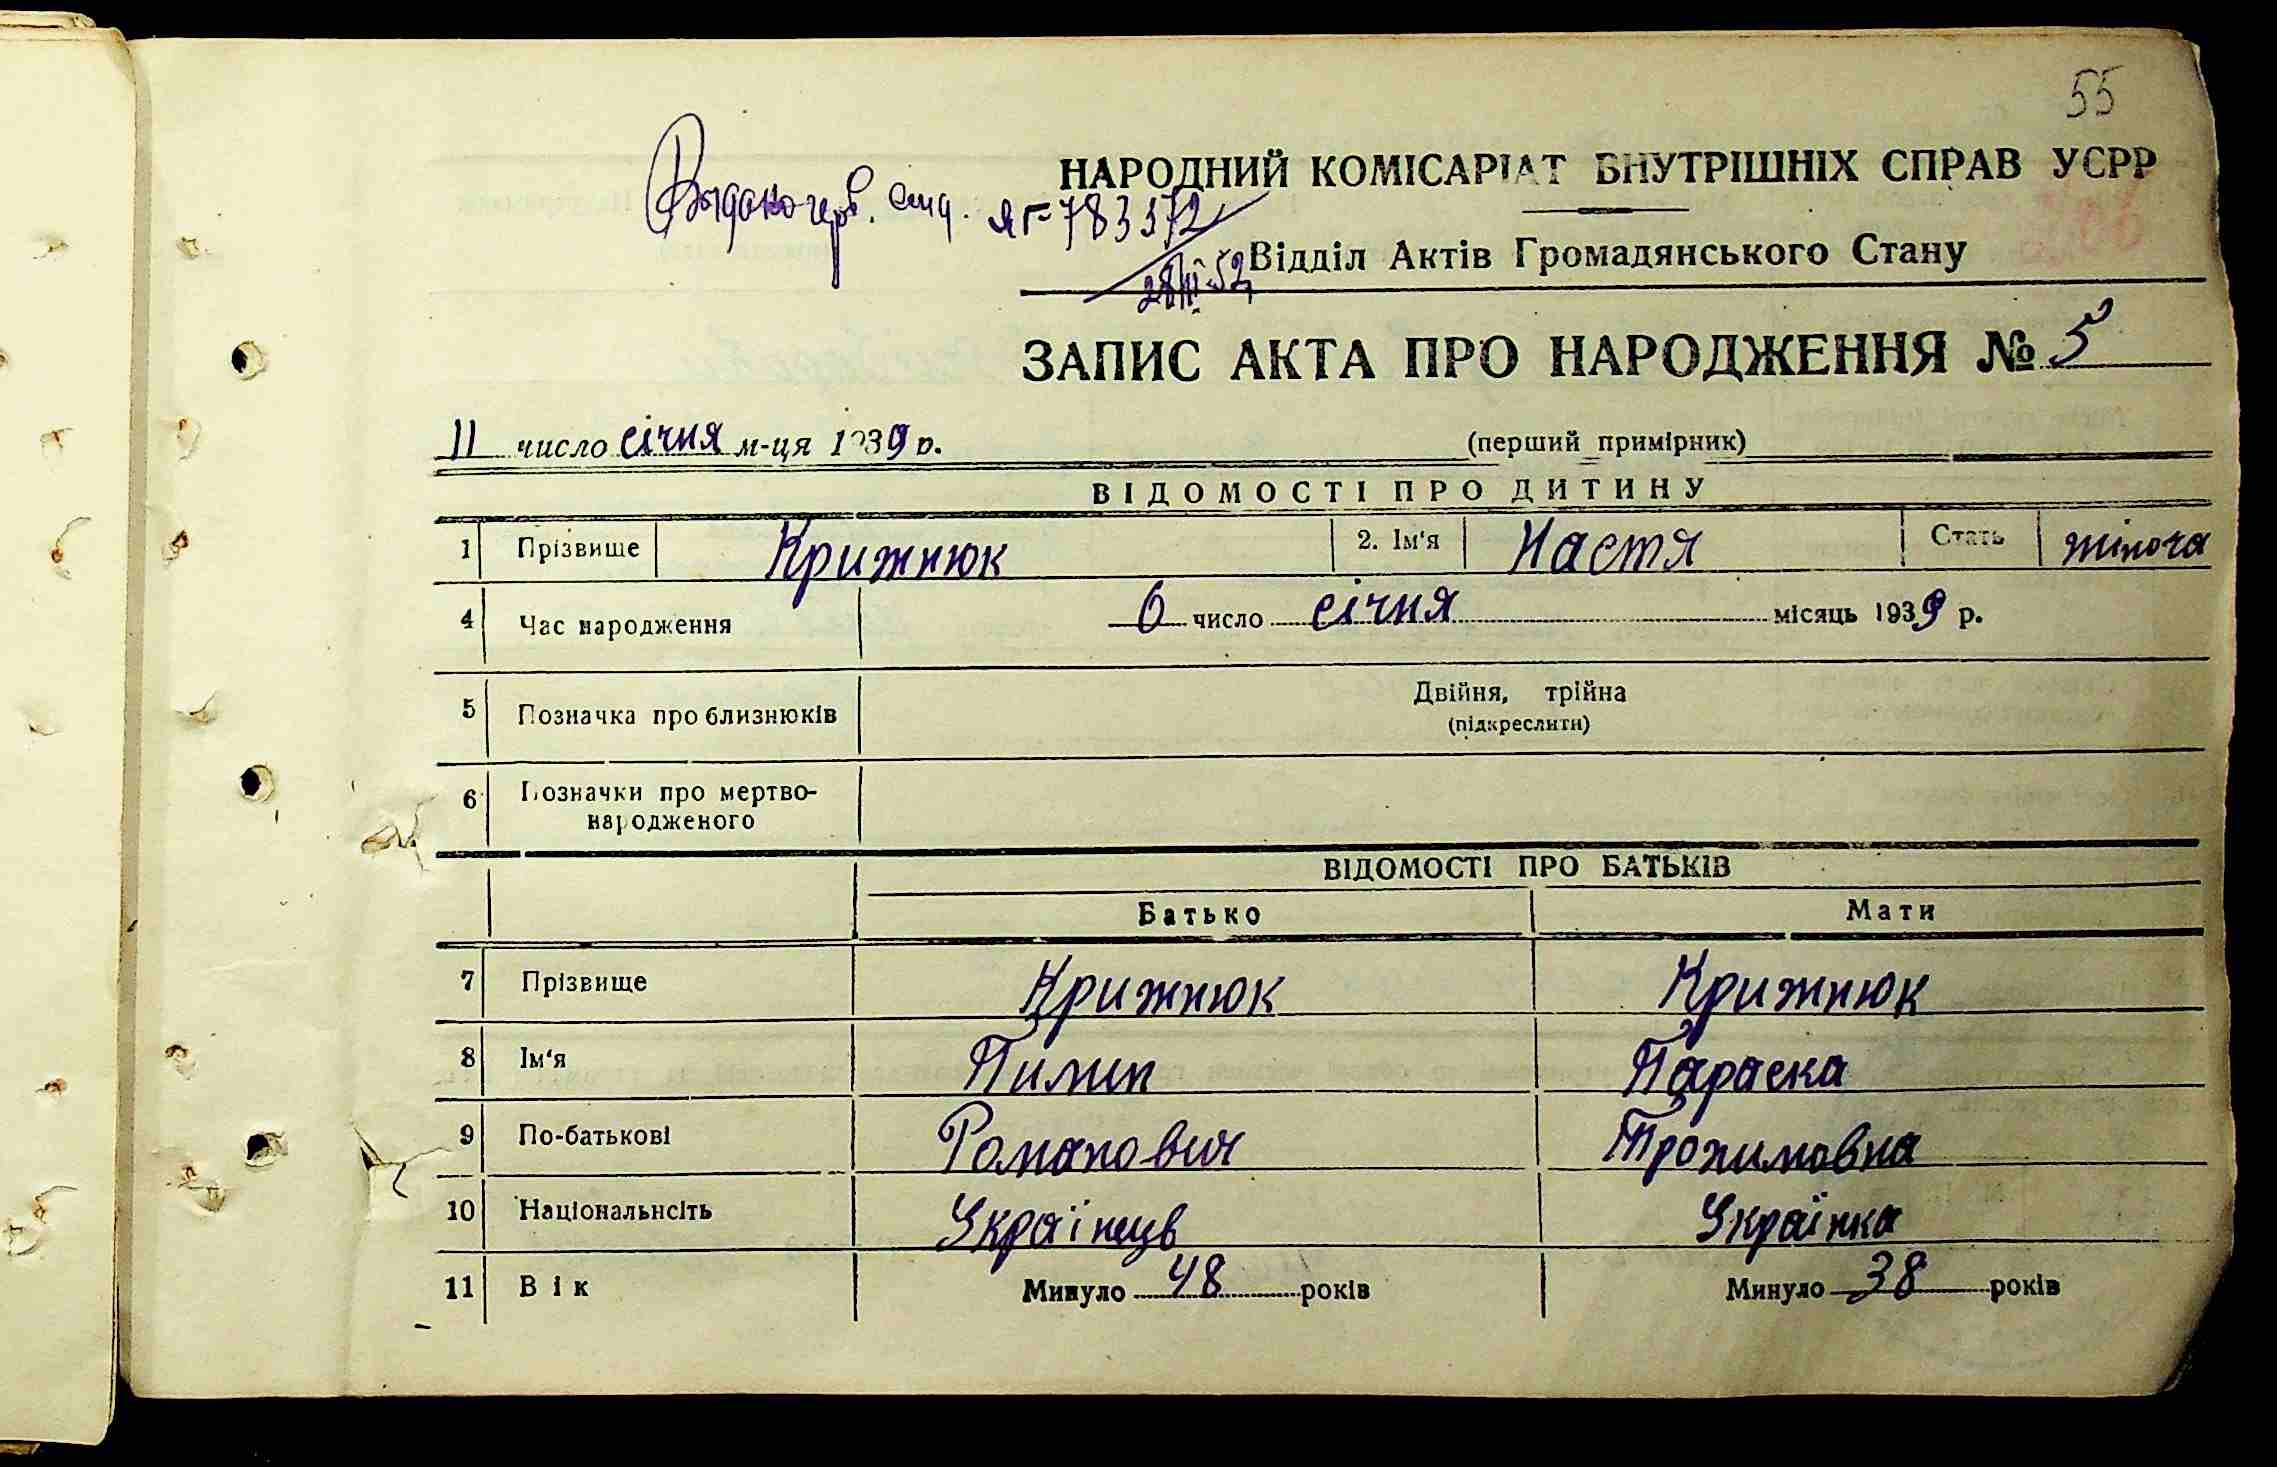 55
НАРОДНИЙ КОМІСАРІАТ ВНУТРІШНІХ СПРАВ УСРР
ЯГ-783372
Відділ Актів Громадянського Стану
ЗАПИС АКТА ПРО НАРОДЖЕННЯ № 5
11 число січня м-ця 1939 р. (перший примірник)
ВІДОМОСТІ ПРО ДИТИНУ
1 Прізвище Крижнюк 2. Ім'я Настя Стать жіноча
4 Час народження 6 число січня місяць 1939 р.
5 Позначка про близнюків Двійня, трійна
(підкреслити)
6 Позначки про мертво-
народженого
ВІДОМОСТІ ПРО БАТЬКІВ
Батько Мати
7 Прізвище Крижнюк Крижнюк
8 Ім'я Пилип Параска
9 По-батькові Романович Трохимовна
10 Національнсіть Українець Українка
11 Вік Минуло 48 років Минуло 38 років